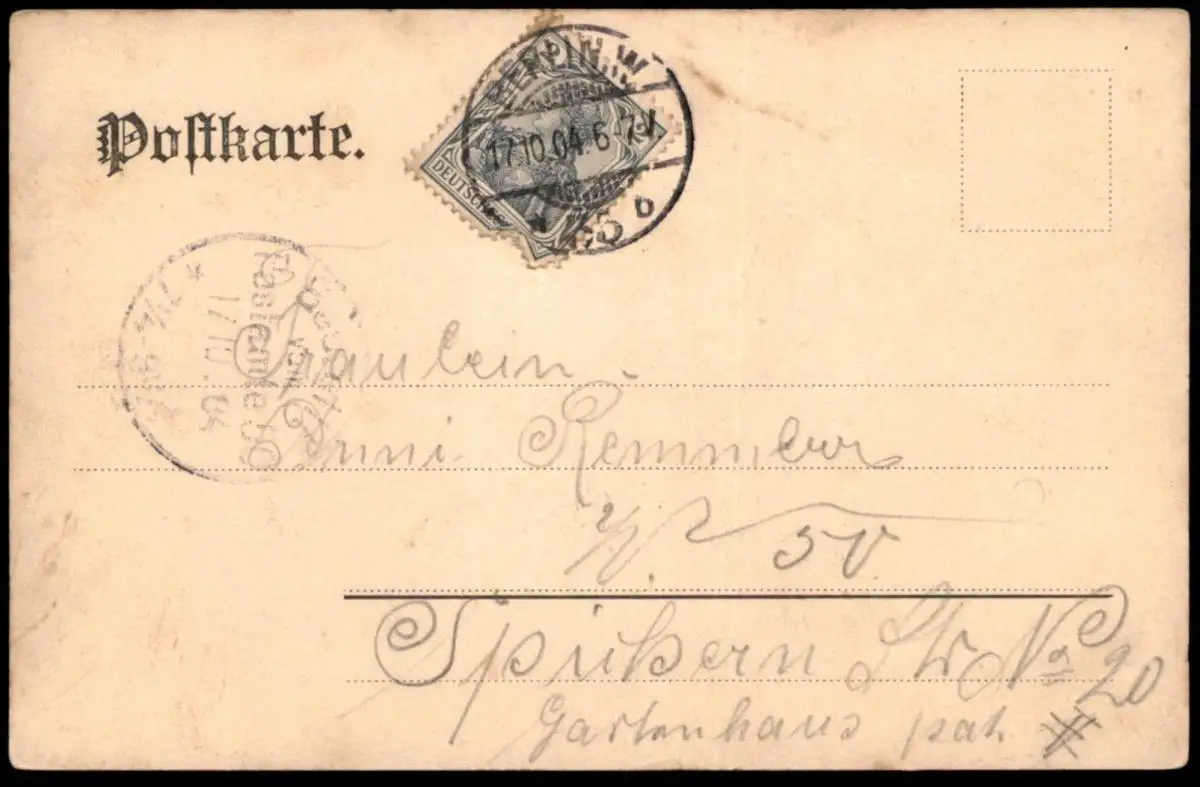 Postkarte.
BERLIN. W.
17.10.04. 6-7V
* 35 b
DEUTSCH
Bestellt
vom
Postamte 50
17.10.04
7¼-9¼V
*
Fräulein
Anni Remmler
W. 50
Spichern Str No 20
Gartenhaus part.